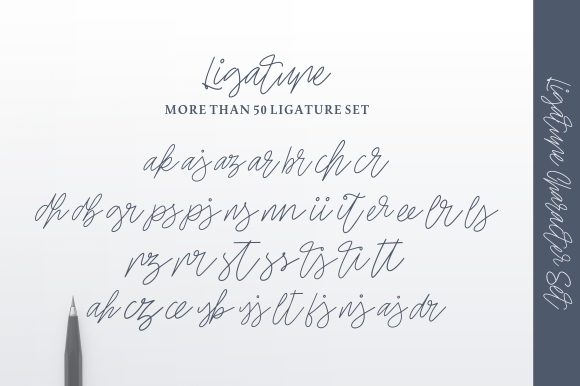 Ligature
MORE THAN 50 LIGATURE SET
ak as az ar br ch cr
dh ds gr ps pj ns nn ii it er ee lr ls
rz rr st ss ts ti tt
ah cz ce yp yj lt fj nj aj dr
Ligature Character Set